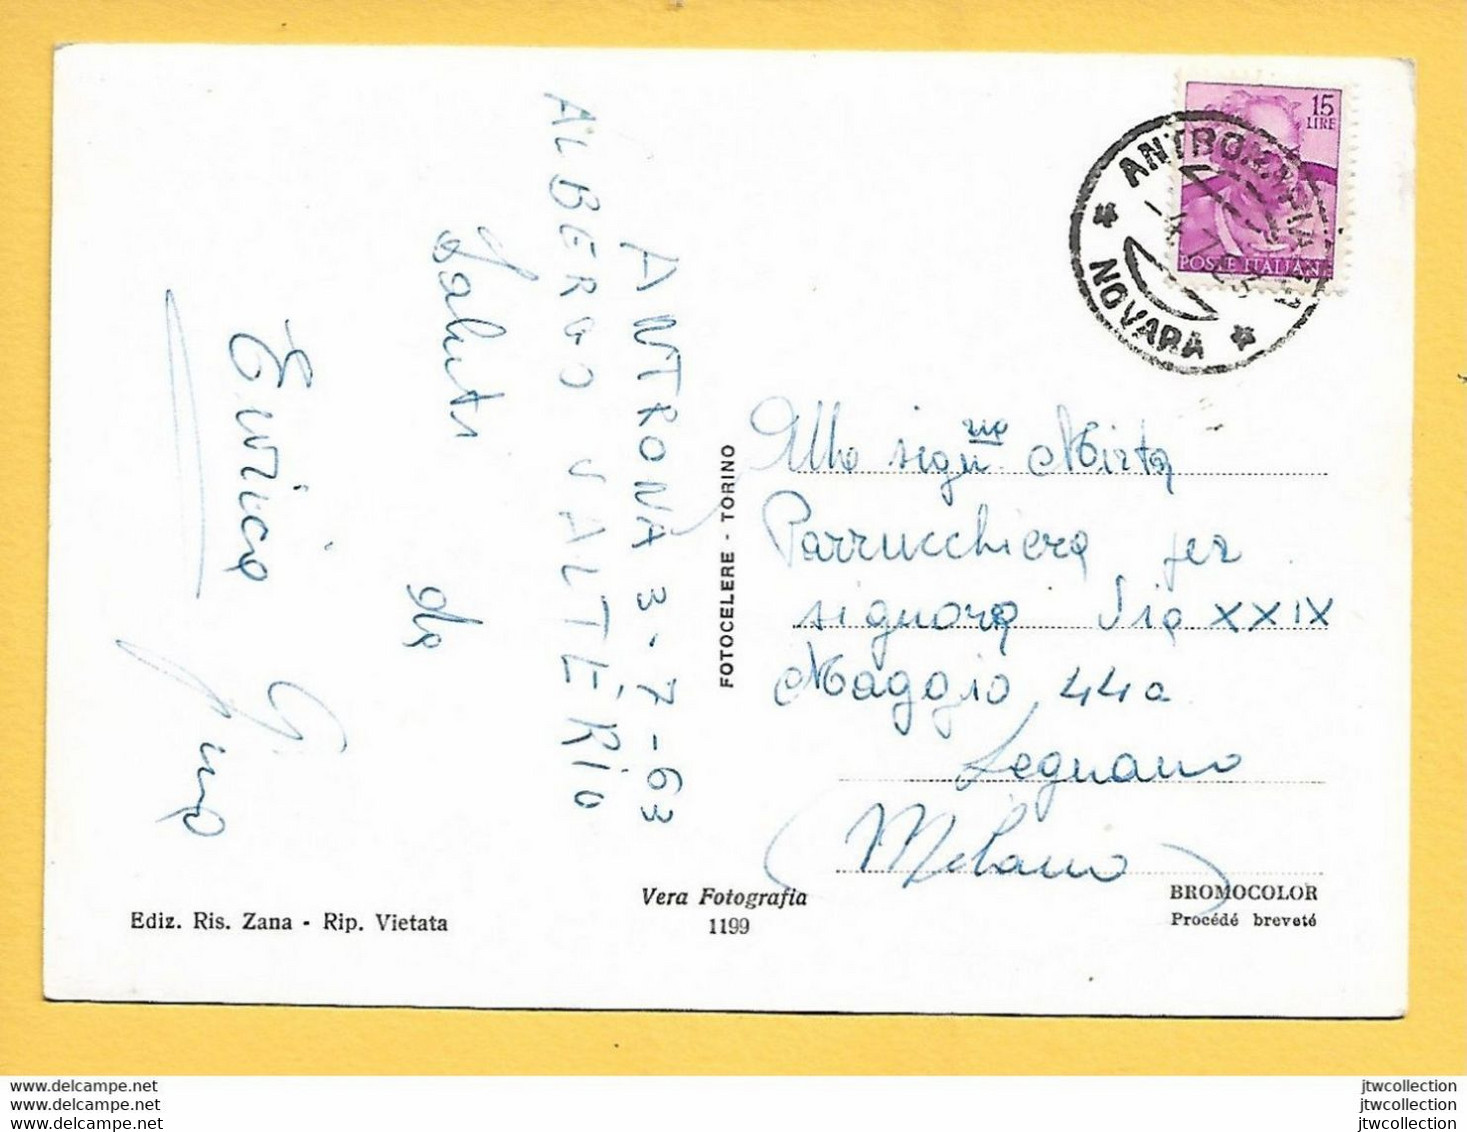 ANTRONA 3-7-63
ALBERGO VALTERIO
Saluti
da
Enrica
Gino
15
LIRE
POSTE ITALIANE
NOVARA
Alla sigu.na Mirta
Parrucchiera per
signora Via XXIX
Maggio 44a
Legnano
(Milano)
FOTOCELERE - TORINO
Vera Fotografia
1199
Ediz. Ris. Zana - Rip. Vietata
BROMOCOLOR
Procédé breveté
www.delcampe.net
www.delcampe.net
www.delcampe.net
jtwcollection
jtwcollection
jtwcollection